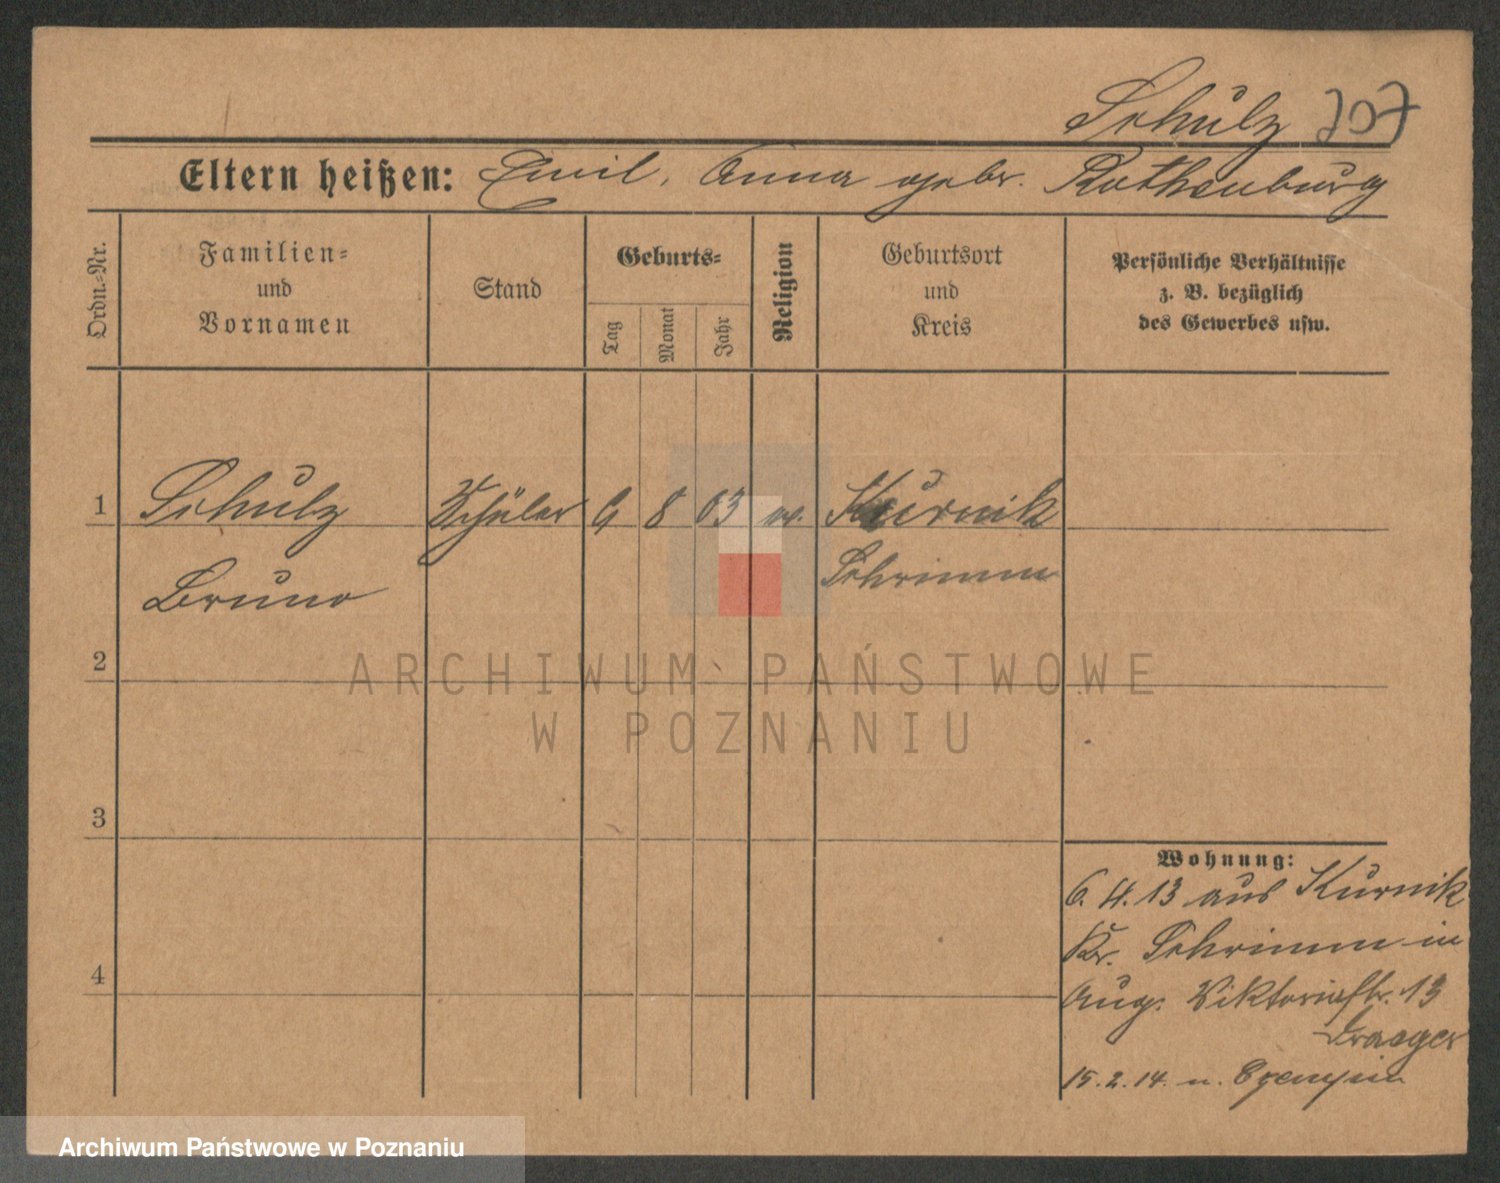 Schulz 707
Eltern heißen: Emil, Anna gebr. Rothenburg
Ordn.-Nr.
Familien-
und
Vornamen
Stand
Geburts-
Tag
Monat
Jahr
Religion
Geburtsort
und
Kreis
Persönliche Verhältnisse
z. B. bezüglich
des Gewerbes usw.
1 Schulz Schüler 8 03 Kurnik
Bruno Schrimm
2
3
4
Wohnung:
6. 4. 13 aus Kurnik
Kr. Schrimm in
Aug. Viktoriastr. 13
Draeger
15. 2. 14. n.
ARCHIWUM PAŃSTWOWE
W POZNANIU
Archiwum Państwowe w Poznaniu